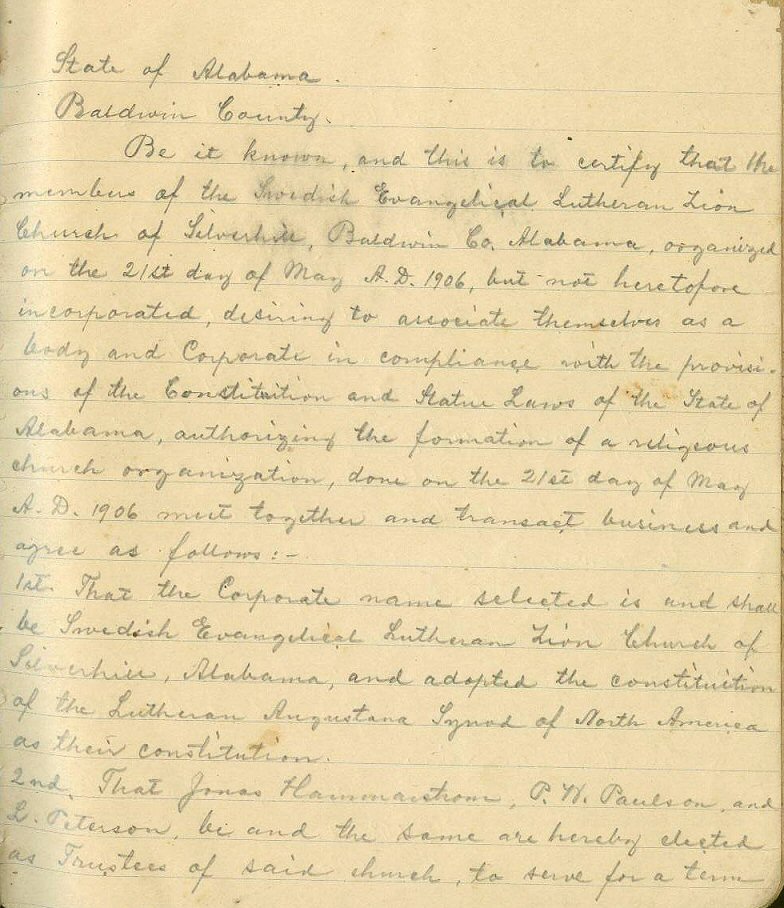 State of Alabama.
Baldwin County.
Be it known, and this is to certify that the
members of the Swedish Evangelical Lutheran Zion
Church of Silverhill, Baldwin Co, Alabama, organized
on the 21st day of May A.D. 1906, but not heretofore
incorporated, desiring to associate themselves as a
body and Corporate in compliance with the provisi-
ons of the Constitution and Statue Laws of the State of
Alabama, authorizing the formation of a religeous
church organization, done on the 21st day of May
A.D. 1906 meet together and transact business and
agree as follows:-
1st. That the Corporate name selected is and shall
be Swedish Evangelical Lutheran Zion Church of
Silverhill, Alabama, and adopted the constituition
of the Lutheran Augustana Synod of North America
as their constitution.
2nd. That Jonas Hammarstrom, P. W. Paulson, and
L. Peterson, be and the same are hereby elected
as Trustees of said church, to serve for a term